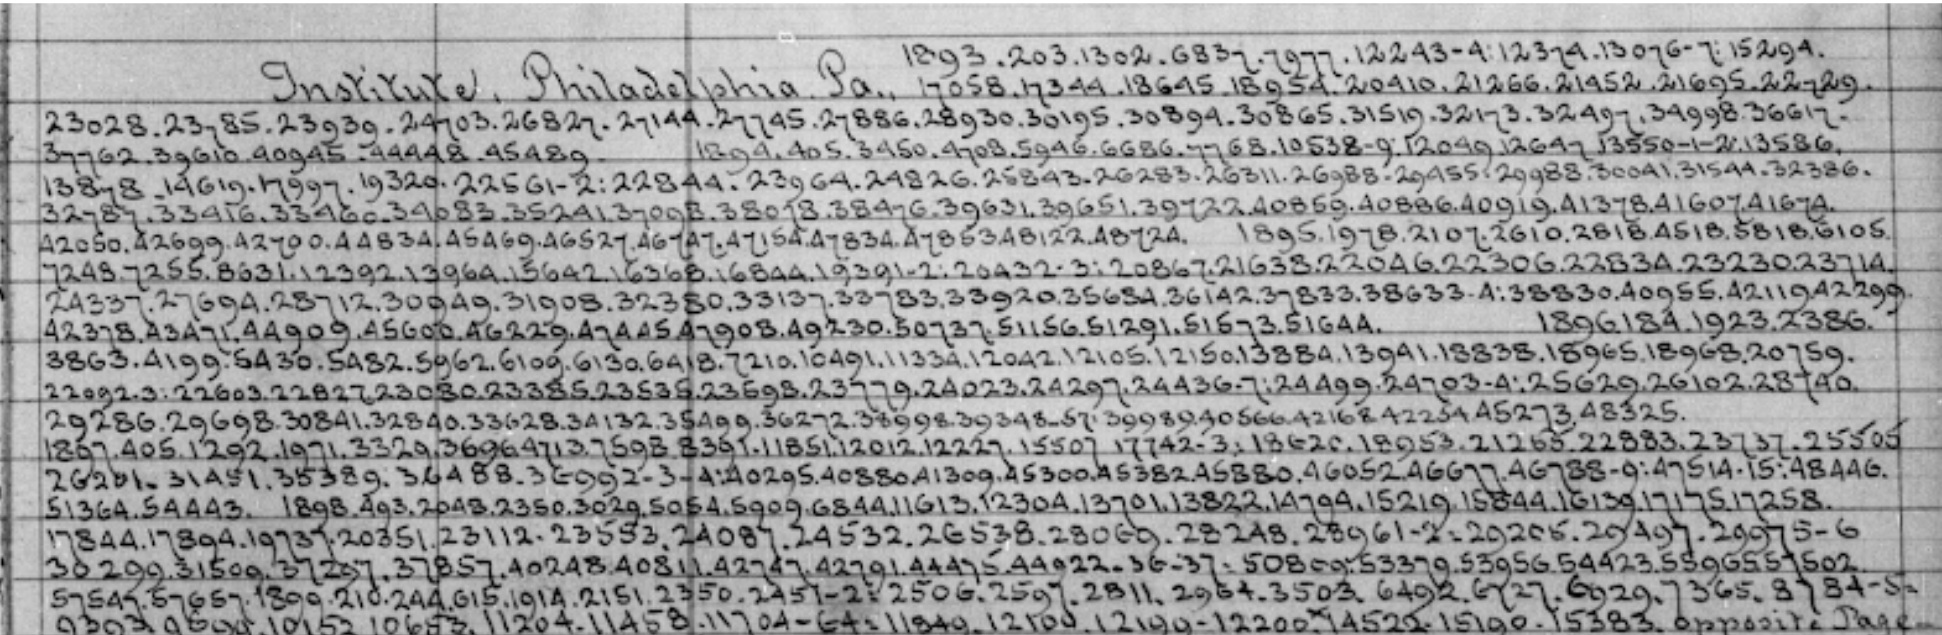 1893.203.1302.6837.7977.12243-4:12374.13076-7:15294.
Institute, Philadelphia Pa., 17058.17344.18645.18954.20410.21266.21452.21695.22729.
23028.23785.23939.24703.26827.27144.27745.27886.28930.30195.30894.30865.31519.32173.32497.34998.36617.
37762.39610.40945.44448.45489. 1894.405.3450.4708.5946.6686.7768.10538-9:12049.12647.13550-1-2:13586.
13878.14619.17997.19320.22561-2:22844.23964.24826.25843.26283.26311.26988.29455.29988.30041.31544.32386.
32787.33416.33460.34083.35241.37098.38078.38476.39631.39651.39722.40859.40886.40919.41378.41607.41674.
42050.42699.42700.44834.45469.46527.46747.47154.47834.47853.48122.48724. 1895.1978.2107.2610.2818.4518.5818.6105.
7248.7255.8631.12392.13964.15642.16368.16844.19391-2:20432-3:20867.21638.22046.22306.22834.23230.23714.
24337.27694.28712.30949.31908.32380.33137.33783.33920.35684.36142.37833.38633-4:38830.40955.42119.42299.
42378.43471.44909.45600.46229.47445.47908.49230.50737.51156.51291.51573.51644. 1896.184.1923.2386.
3863.4199.5430.5482.5962.6109.6130.6418.7210.10491.11334.12042.12105.12150.13884.13941.18838.18965.18968.20759.
22092.3:22603.22827.23080.23385.23535.23598.23779.24023.24297.24436-7:24499.24703-4:25629.26102.28740.
29286.29698.30841.32840.33628.34132.35499.36272.38998.39348-57:39989.40566.42168.42254.45273.48325.
1897.405.1292.1971.3329.3696.4713.7598.8391.11851.12012.12227.15507.17742-3:18620.18953.21265.22883.23737.25505
26201.31451.35389.36488.36992-3-4:40295.40880.41309.45300.45382.45880.46052.46677.46788-9:47514-15:48446.
51364.54443. 1898.493.2048.2350.3029.5054.5909.6844.11613.12304.13701.13822.14794.15219.15844.16139.17175.17258.
17844.17894.19737.20351.23112.23553.24087.24532.26538.28069.28248.28961-2:29205.29497.29975-6
30299.31509.37297.37857.40248.40811.42747.42791.44475.44922-36-37:50869.53379.53956.54423.55965.57502.
57547.57657.1899.210.244.615.1914.2151.2350.2457-2:2506.2597.2811.2964.3503.6492.6727.6929.7365.8784-5-
10152.10653.11204.11458.11704-64:11849.12100.12199-12200.14522.15190.15383. opposite Page